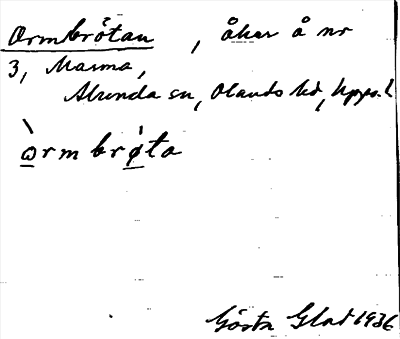 Ormbrötan , åker å nr
3, Marma,
Alunda sn, Olands hd, Upps. l
òrmbrǿta
Gösta Glad 1936